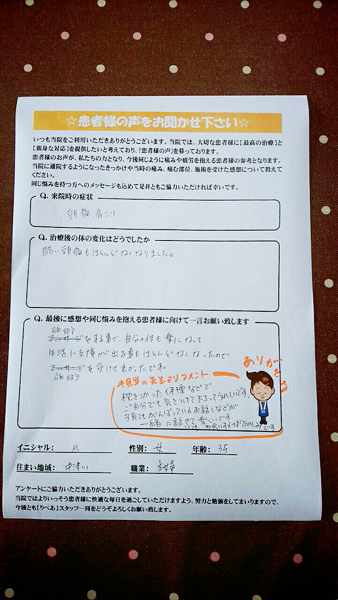 ☆患者様の声をお聞かせ下さい☆
いつも当院をご利用いただきありがとうございます。当院では、大切な患者様に【最高の治療】と
【親身な対応】を提供したいと考えており、「患者様の声」を募っております。
患者様のお声が、私たちの力となり、今後同じように痛みや疲労を抱える患者様の参考となります。
当院に通院するようになったきっかけや当時の痛み、痛む部位、施術を受けた感想について教えて
ください。
同じ悩みを持つ方へのメッセージも込めて是非ともご協力いただければ幸いです。
Q. 来院時の症状
頭痛、肩こり
Q. 治療後の体の変化はどうでしたか
酷い頭痛もほとんどなくなりました。
Q. 最後に感想や同じ悩みを抱える患者様に向けて一言お願い致します
施術
をする事で、自分の体も楽になって
生活に支障が出る事もほとんどなくなったので
施術
を受けて良かったです。
ありがとう
担当の先生よりコメント
枕をつかった体操などで
ご自分でも気をつけて下さってうれしいです。
子育てもがんばっているお話しなどが
一緒に話せて楽しいです。
イニシャル： M 性別： 女 年齢： 35
住まい地域： 中津川 職業： 主婦
アンケートにご協力いただきありがとうございます。
当院ではよりいっそう患者様に快適な毎日を過ごしていただけますよう、努力と勉強をしてまいりますので、
今後とも【りぺあ】スタッフ一同をどうぞよろしくお願い致します。